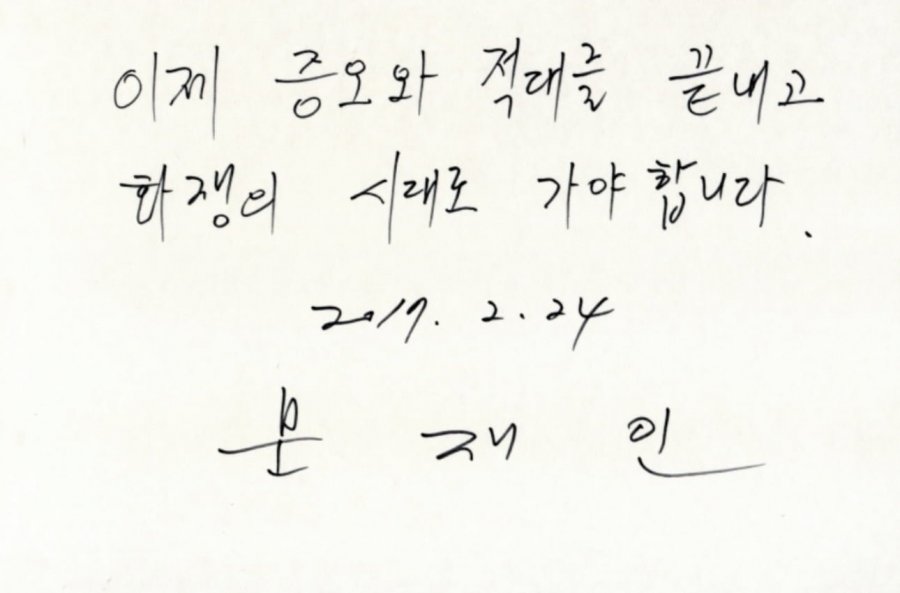 이제 증오와 적대를 끝내고
화쟁의 시대로 가야 합니다.
2017. 2. 24
문 재 인